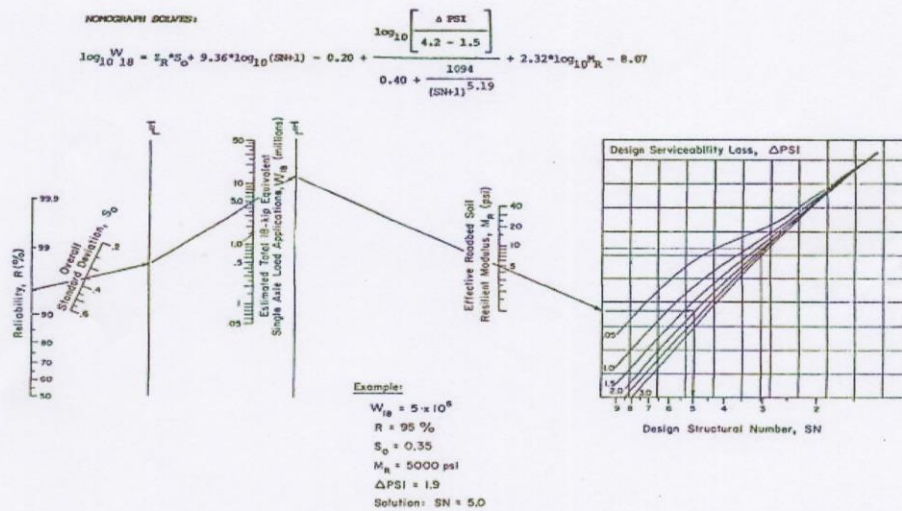 NOMOGRAPH SOLVES:
log₁₀W₁₈ = Z_R*S_o + 9.36*log₁₀(SN+1) - 0.20 + log₁₀[Δ PSI / (4.2 - 1.5)] / (0.40 + 1094 / (SN+1)^5.19) + 2.32*log₁₀M_R - 8.07
Reliability, R (%)
99.9
99
90
80
70
60
50
Overall
Standard Deviation, S₀
.2
.4
.6
TL
Estimated Total 18-kip Equivalent
Single Axle Load Applications, W₁₈ (millions)
50
10
5.0
1.0
.5
.1
.05
TL
Effective Roadbed Soil
Resilient Modulus, M_R (psi)
40
20
10
5
1
Design Serviceability Loss, ΔPSI
1.0
1.5
2.0
3.0
9 8 7 6 5 4 3 2
Design Structural Number, SN
Example:
W₁₈ = 5 x 10⁶
R = 95 %
S₀ = 0.35
M_R = 5000 psi
ΔPSI = 1.9
Solution: SN = 5.0